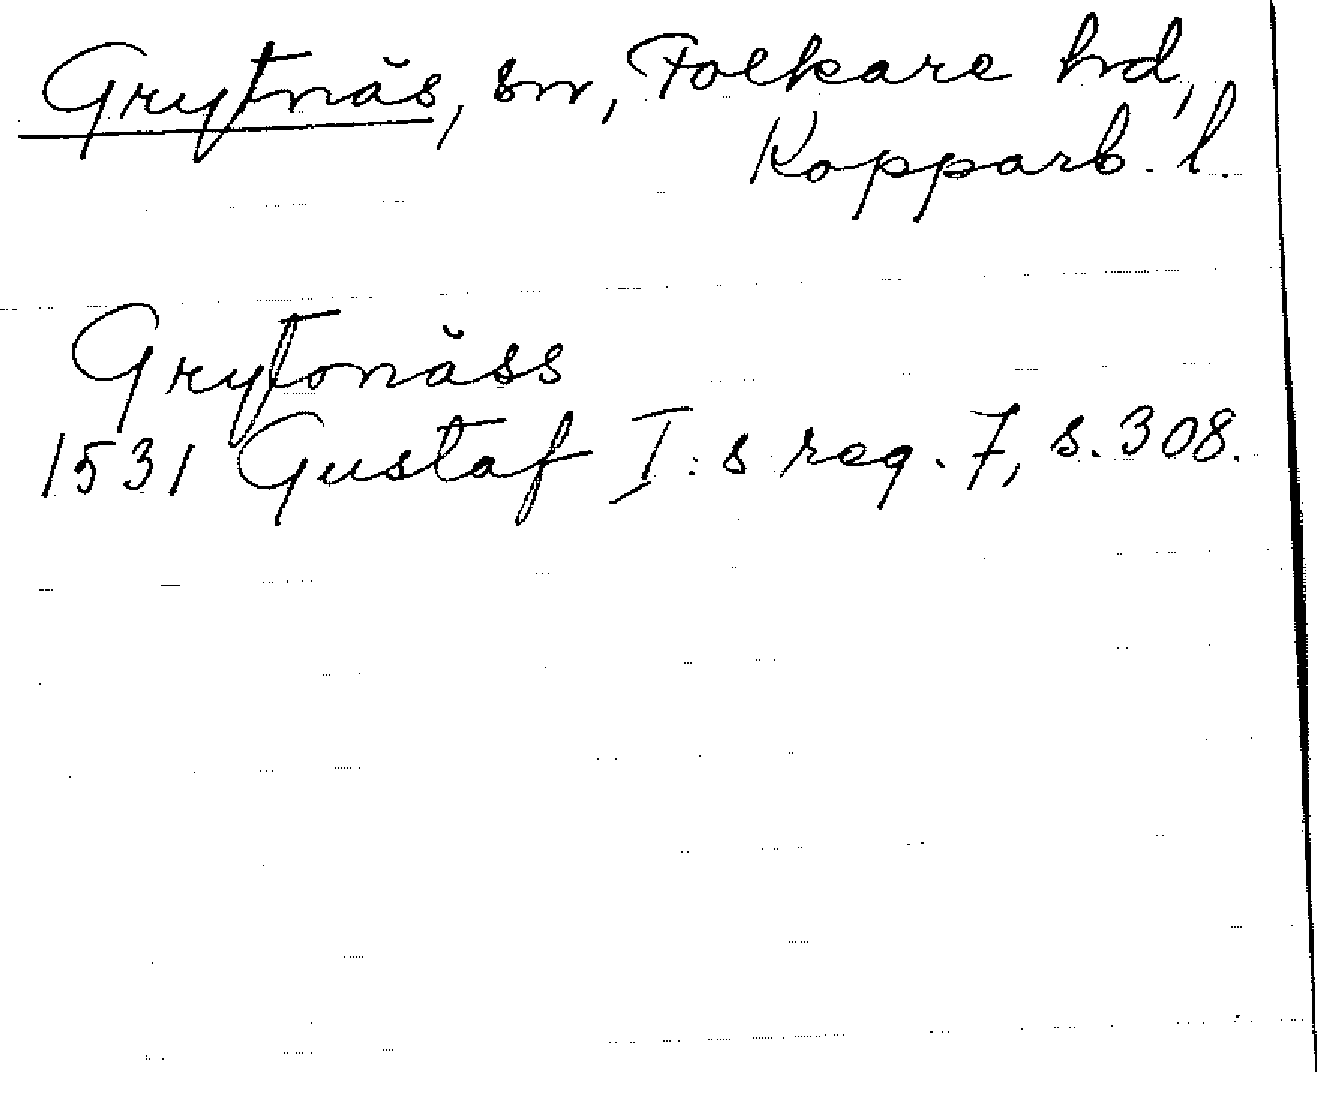 Grytnäs, sn, Folkare hd,
Kopparb. l.
Grytonäss
1531 Gustaf I:s reg. 7, s. 308.